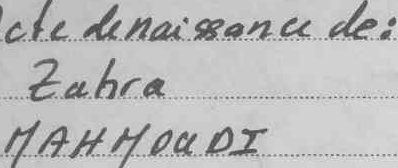 cte de naissance de:
Zahra
MAHMOUDI